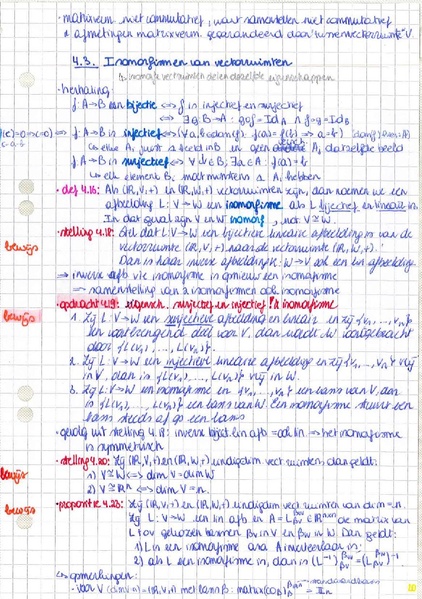 · matrixverm. niet commutatief, want samenstellen niet commutatief
& afmetingen matrixverm. gegarandeerd door tussenvectorruimte V.
4.3. Isomorfismen van vectorruimten
↳ isomorfe vectorruimten delen dezelfde eigenschappen
· herhaling:
f: A→B een bijectie ⟺ f is injectief en surjectief
⟺ ∃ g: B→A : g∘f = Id_A ∧ f∘g = Id_B
f: A→B is injectief ⟺ (∀ a, b ∈ dom(f): f(a) = f(b) ⟹ a = b)
f: A→B is surjectief ⟺ ∀ b ∈ B, ∃ a ∈ A : f(a) = b
↳ elk element B, moet minstens 1 A, hebben
· def 4.16: Als (ℝ,V,+) en (ℝ,W,+) vectorruimten zijn, dan noemen we een
afbeelding L: V→W een isomorfisme als L bijectief en lineair is.
In dat geval zijn V en W isomorf, not. V≅W.
bewijs
· stelling 4.18: Stel dat L: V→W een bijectieve lineaire afbeelding is van de
vectorruimte (ℝ,V,+) naar de vectorruimte (ℝ,W,+).
Dan is haar inverse afbeelding L⁻¹: W→V ook een lin afbeelding
⇒ inverse afb vie isomorfisme is opnieuw een isomorfisme
⇒ samenstelling van 2 isomorfismen ook isomorfisme
bewijs
· opdracht 4.19: eigensch. surjectief en injectief & isomorfisme
1. Zij L: V→W een surjectieve afbeelding en lineair en zij {v₁, ..., vₙ}
een voortbrengend deel voor V. dan wordt W voortgebracht
door {L(v₁), ..., L(vₙ)}.
2. Zij L: V→W een injectieve lineaire afbeelding en zij {v₁, ..., vₙ} vrij
in V, dan is {L(v₁), ..., L(vₙ)} vrij in W.
3. Zij L: V→W een isomorfisme en {v₁, ..., vₙ} een basis van V, dan
is {L(v₁), ..., L(vₙ)} een basis van W. Een isomorfisme stuurt een
basis steeds af op een basis
· gevolg uit stelling 4.18: inverse biject. lin afb = ook lin. ⇒ het isomorfisme
is symmetrisch
bewijs
· stelling 4.20: Zij (ℝ,V,+) en (ℝ,W,+) eindigdim vect ruimten, dan geldt:
1) V≅W ⟺ dim V = dim W
2) V≅ℝⁿ ⟺ dim V = n.
bewijs
· propositie 4.23: Zij (ℝ,V,+) en (ℝ,W,+) eindigdim vect ruimten van dim = n.
Zij L: V→W een lin afb en A = L ∈ ℝⁿˣⁿ de matrix van
L tov gekozen basissen βv in V en βw in W. Dan geldt:
1) L is een isomorfisme asa A inverteerbaar is:
2) als L een isomorfisme is, dan is (L⁻¹) = (L)⁻¹
↳ opmerkingen: